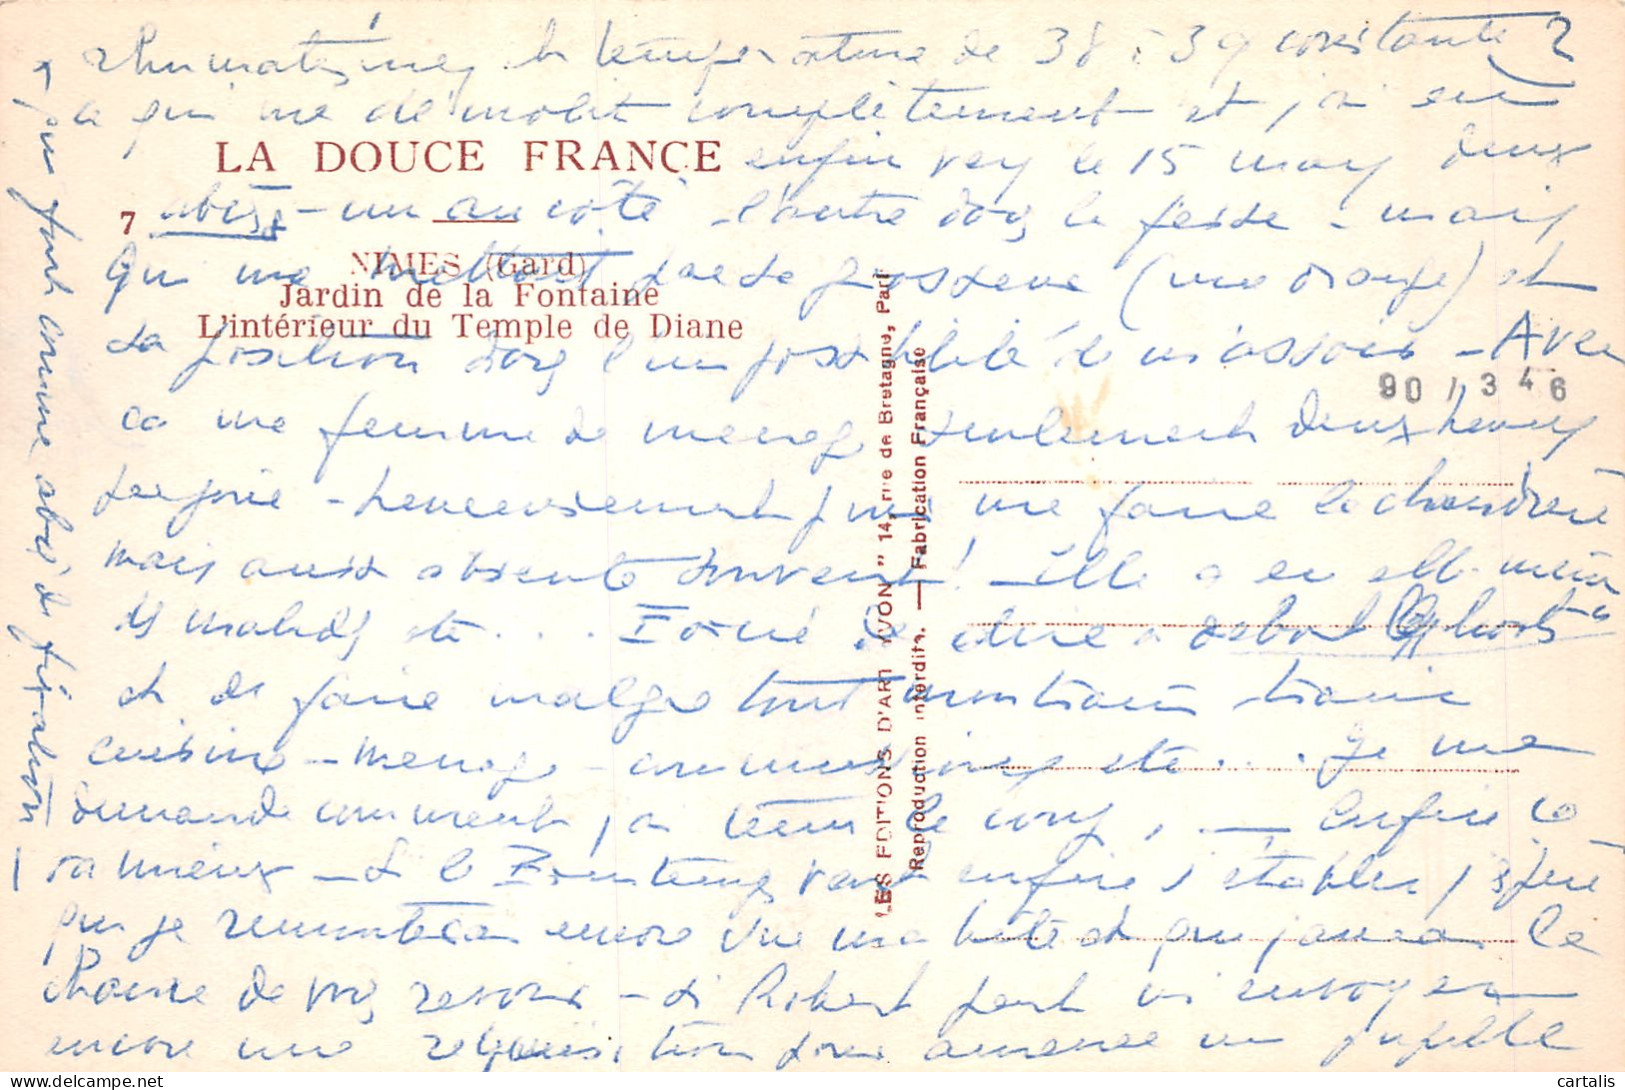 rhumatismes, la température de 38 à 39 constante
ce qui me démolit complètement et j'ai eu
LA DOUCE FRANCE
enfin vers le 15 mars deux
7
abcès - un au côté - l'autre dans la fesse - mais
qui me
NIMES (Gard)
grosseur (une orange) et
Jardin de la Fontaine
L'intérieur du Temple de Diane
la position dans l'impossibilité de m'asseoir - Avec
90 / 346
ça une femme de ménage seulement deux heures
par jour - heureusement pour me faire la chaudière
mais aussi absente souvent ! - Elle a eu elle même
des malades etc... Forcé de d'abord
et de faire malgré tout mon train train
cuisine - ménage - etc... Je me
demande comment j'ai tenu le coup, - Enfin ça
va mieux - Si le Printemps veut enfin s'établir, j'espère
que je remonterai encore une fois la côte et que j'aurai la
chance de vous revoir - si Robert peut m'envoyer
encore une réquisition pour
que font comme abcès de fixation
LES EDITIONS D'ART YVON" 14, rue de Bretagne, Paris
Reproduction interdite. — Fabrication Française
cartalis